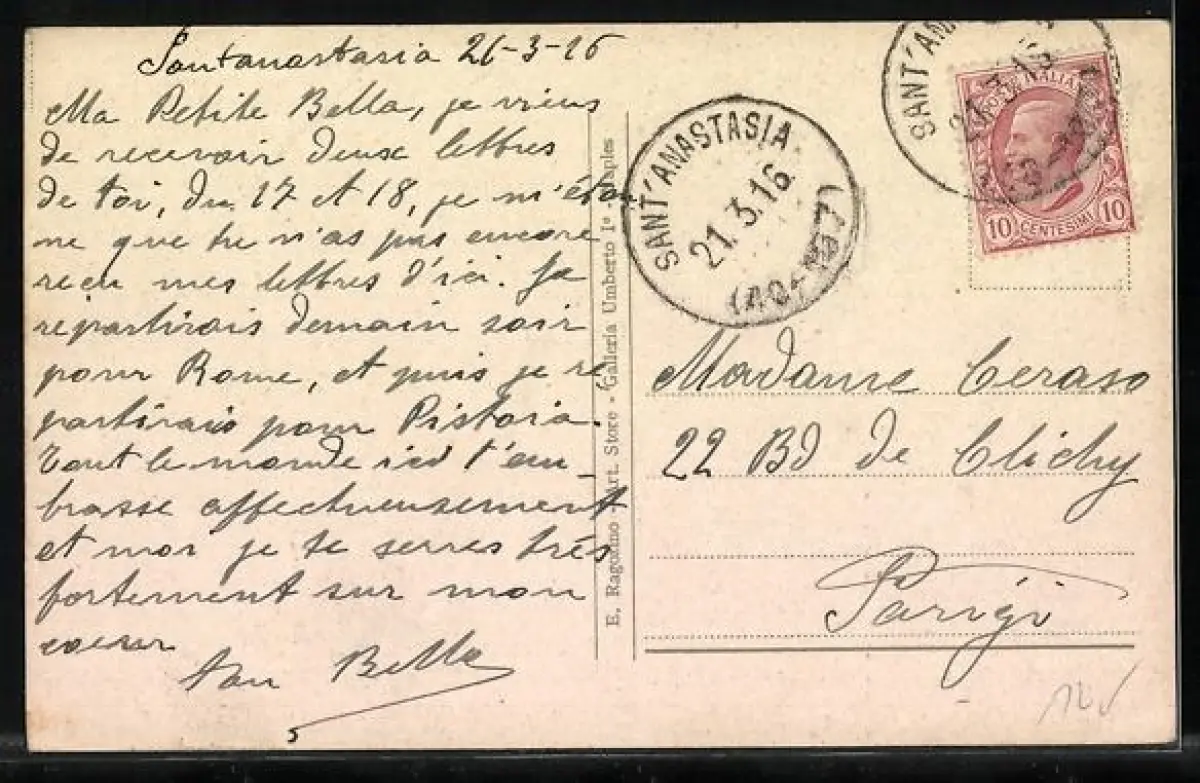 Santanastasia 21-3-16
Ma Petite Bella, je viens
de recevoir deuse lettres
de toi, du 17 et 18, je m'éton
ne que tu n'as pas encore
reçu mes lettres d'ici. Je
repartirais demain soir
pour Rome, et puis je re
partirais pour Pistoia.
Tout le monde ici t'em-
brasse affectueusement
et moi je te serres très
fortement sur mon
coeur
ton Bello
E. Ragozino Art. Store - Galleria Umberto Iº Naples
SANT'ANASTASIA
21.3.16
SANT'AN
21.3.16
POSTE ITALIANE
10 CENTESIMI 10
Madame Ceraso
22 Bd de Clichy
Parigi